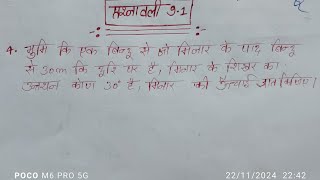 प्रश्नावली 9.1
4. भूमि कि एक बिन्दू से जो मिनार के पाद बिन्दू
से 30m कि दूरि पर है, मिनार के शिखर का
उन्नयन कोण 30° है, मिनार की ऊँचाई ज्ञात किजिए।
POCO M6 PRO 5G
22/11/2024 22:42